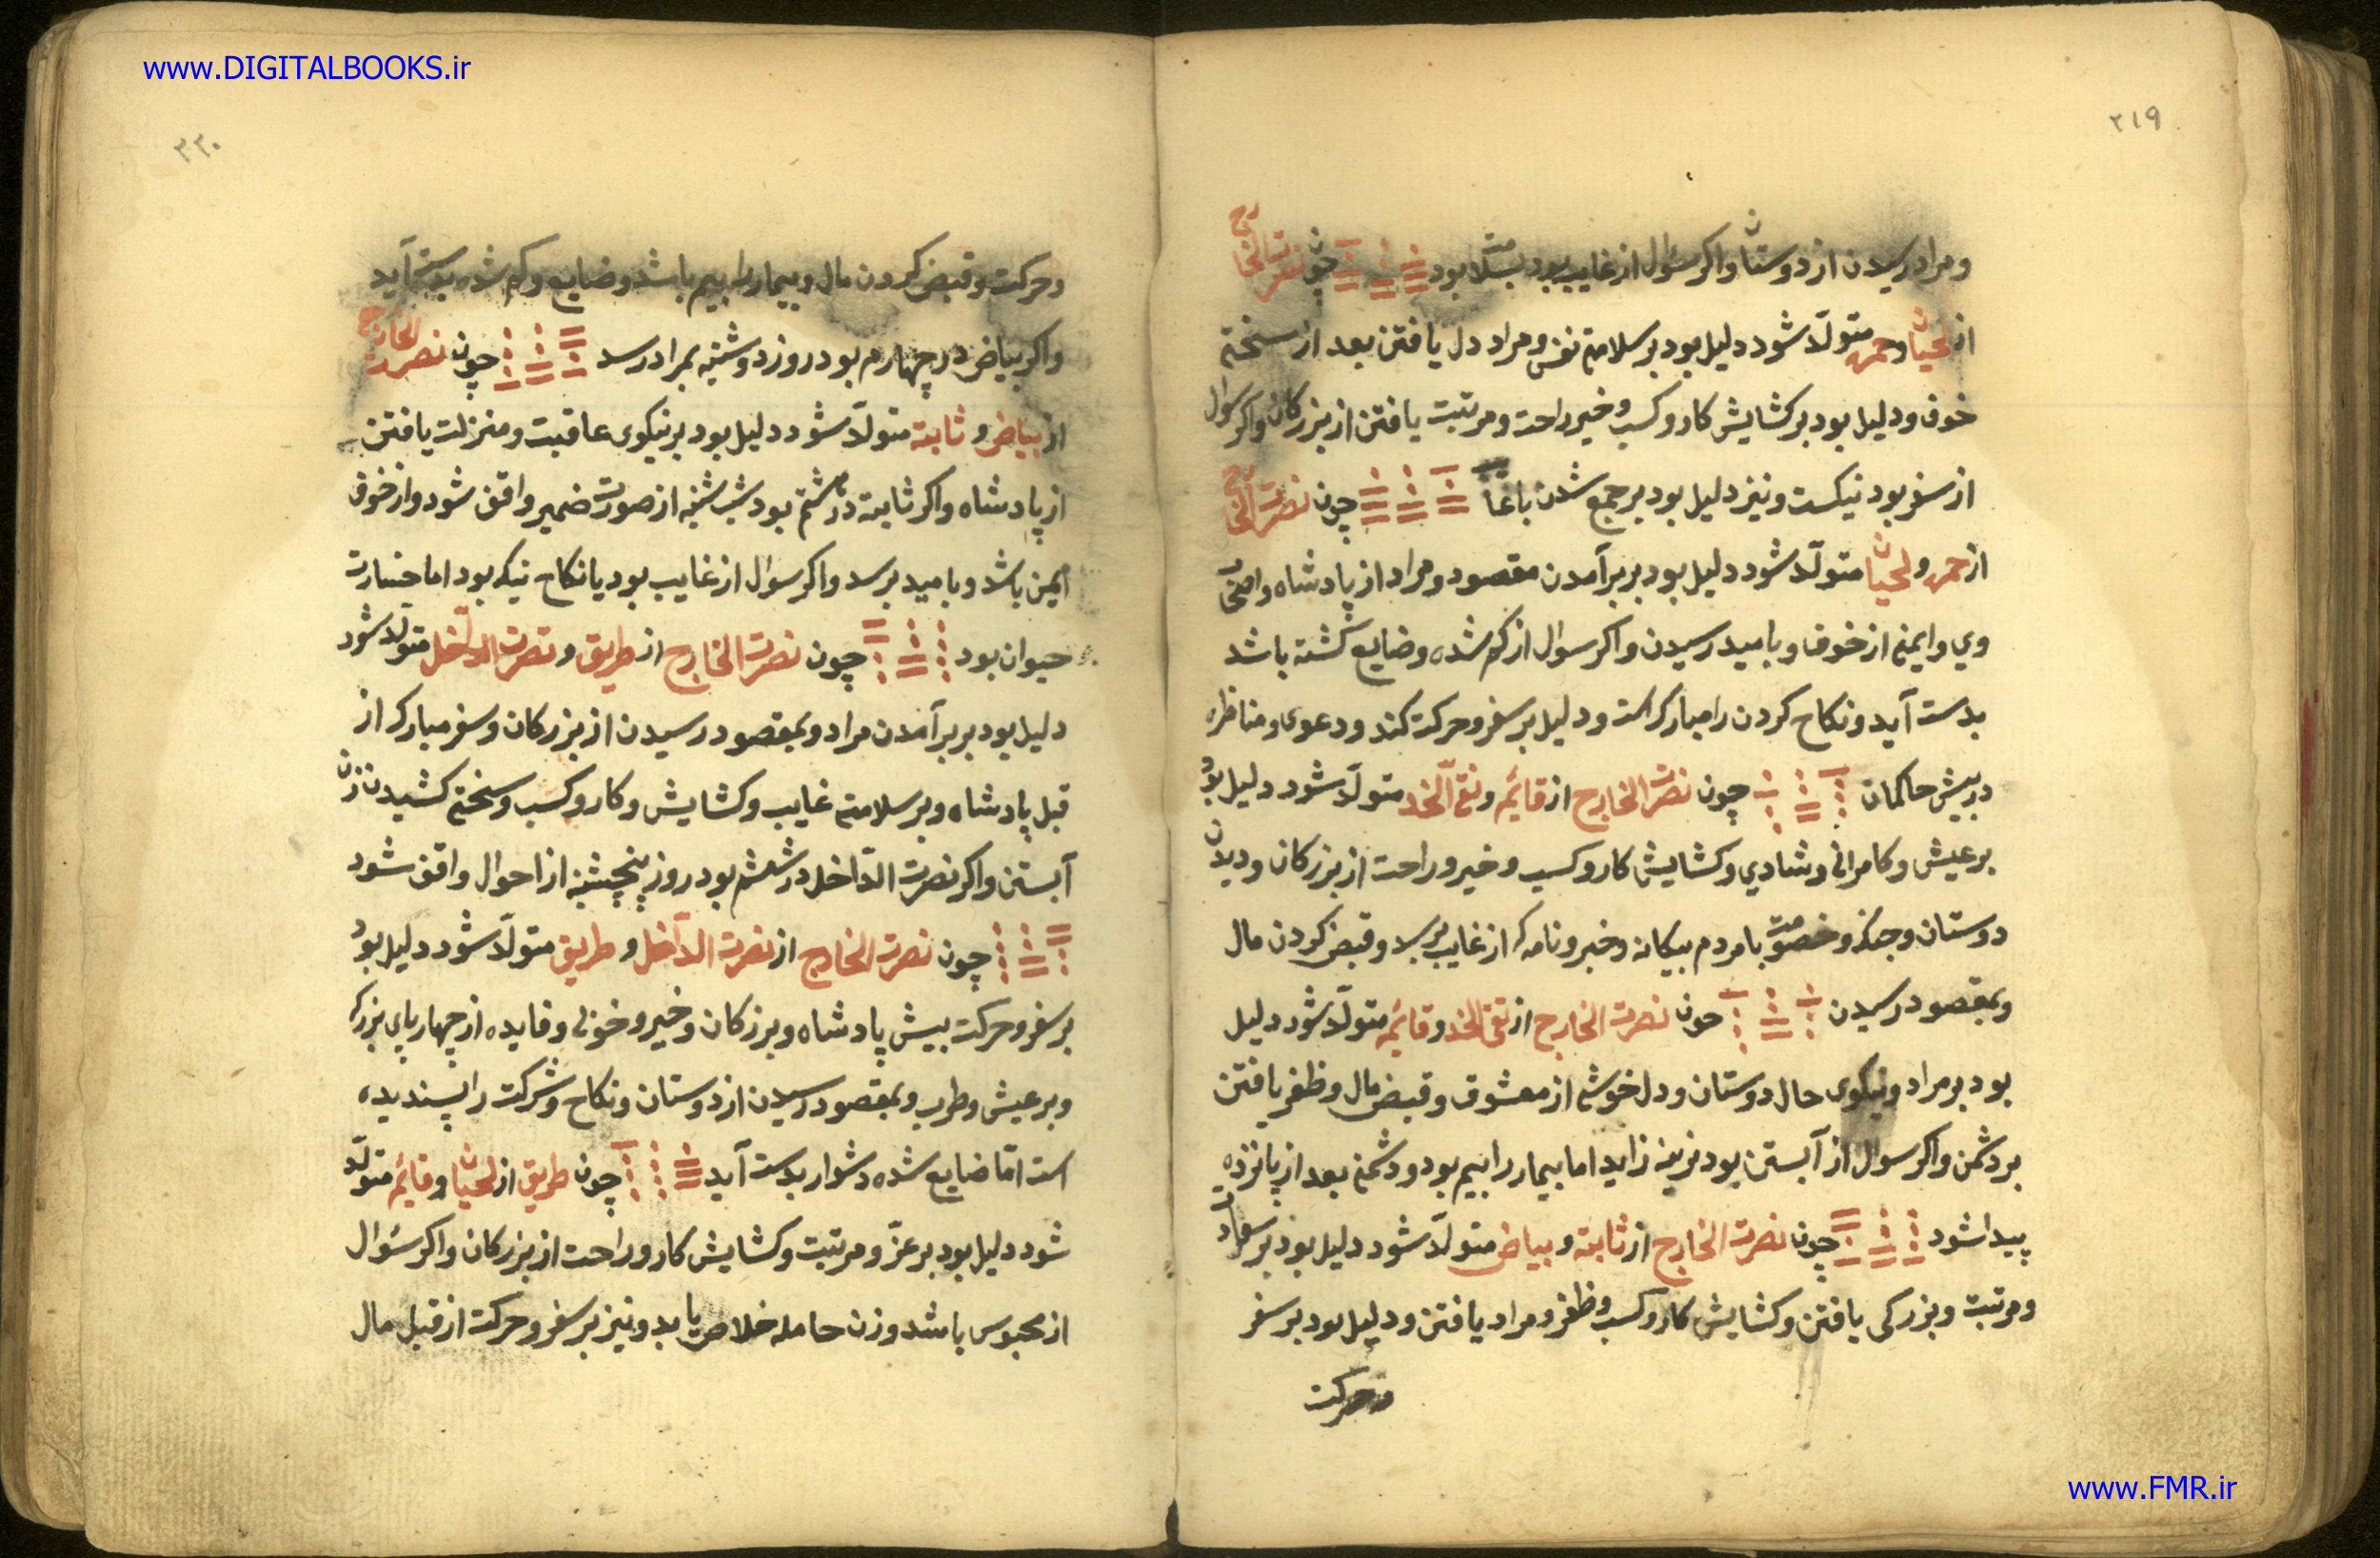 www.DIGITALBOOKS.ir
۲۱۹
ومراد رسیدن از دوستان واکر سئوال از غایب بود بود چون نصرت الخارج
از لحیان وحمره متولّد شود دلیل بود بر سلامتی نفس ومراد دل یافتن بعد از سختی
خوف ودلیل بود بر کشایش کار وکسب وخیر راحت ومرتبت یافتن از بزرکان واکر سوال
از سفر بود نیکست ونیز دلیل بود بر جمع شدن با غایب چون نصرت الخارج
از حمره ولحیان متولّد شود دلیل بود بر برآمدن مقصود ومراد از پادشاه واصحاب
وی وایمنی از خوف وبامید رسیدن واکر سوال از کم شده وضایع کشته باشد
بدست آید ونکاح کردن را مبارک است ودلیل بر سفر وحرکت کند ودعوی ومناظره
در پیش حاکمان چون نصرت الخارج از قایمه ونقی الخد متولّد شود دلیل بود
بر عیش وکامرانی وشادي وکشایش کار وکسب وخیر وراحت از بزرکان ودیدن
دوستان وجنک وخصومت با مردم بیکانه وخبر ونامه که از غایب برسد وقبض کردن مال
وبمقصود رسیدن چون نصرت الخارج از نقی الخد وقایمه متولّد شود دلیل
بود بر مراد ونیکوی حال دوستان ودل خوشی از معشوق وقبض مال وظفر یافتن
بر دشمن واکر سوال از آبستن بود نرینه زاید اما بیمار را بیم بود ودشمنی بعد از پانزده
پیدا شود چون نصرت الخارج از ثابته وبیاض متولّد شود دلیل بود بر سعادت
ومرتبت وبزرکی یافتن وکشایش کار وکسب وظفر ومراد یافتن ودلیل بود بر سفر
وحرکت
۲۲۰
وحرکت وقبض کردن مال وبیمار را بیم باشد وضایع وکم شده بدست آید
واکر بیاض در چهارم بود روز دوشنبه بمراد رسد چون نصرت الخارج
از بیاض وثابته متولّد شود دلیل بود بر نیکوی عاقبت ومنزلت یافتن
از پادشاه واکر ثابته در هشتم بود شب شنبه از صورت ضمیر واقف شود واز خوف
ایمن باشد وبامید برسد واکر سوال از غایب بود یا نکاح نیک بود اما خسارت
حیوان بود چون نصرت الخارج از طریق ونصرت الداخل متولّد شود
دلیل بود بر برآمدن مراد وبمقصود رسیدن از بزرکان وسفر مبارک از
قبل پادشاه وبر سلامتی غایب وکشایش وکار وکسب وسختی کشیدن زن
آبستن واکر نصرت الدّاخل در ششم بود روز پنجشنبه از احوال واقف شود
چون نصرت الخارج از نصرت الداخل وطریق متولّد شود دلیل بود
بر سفر وحرکت پیش پادشاه وبزرکان وخیر وخوبی وفایده از چهارپای بزرک
وبر عیش وطرب وبمقصود رسیدن از دوستان ونکاح وشرکت را پسندیده
است امّا ضایع شده دشوار بدست آید چون طریق از لحیان وقایمه متولّد
شود دلیل بود بر عزّ ومرتبت وکشایش کار وراحت از بزرکان واکر سئوال
از محبوس باشد وزن حامله خلاص یابد ونیز بر سفر وحرکت از قبل مال
www.FMR.ir